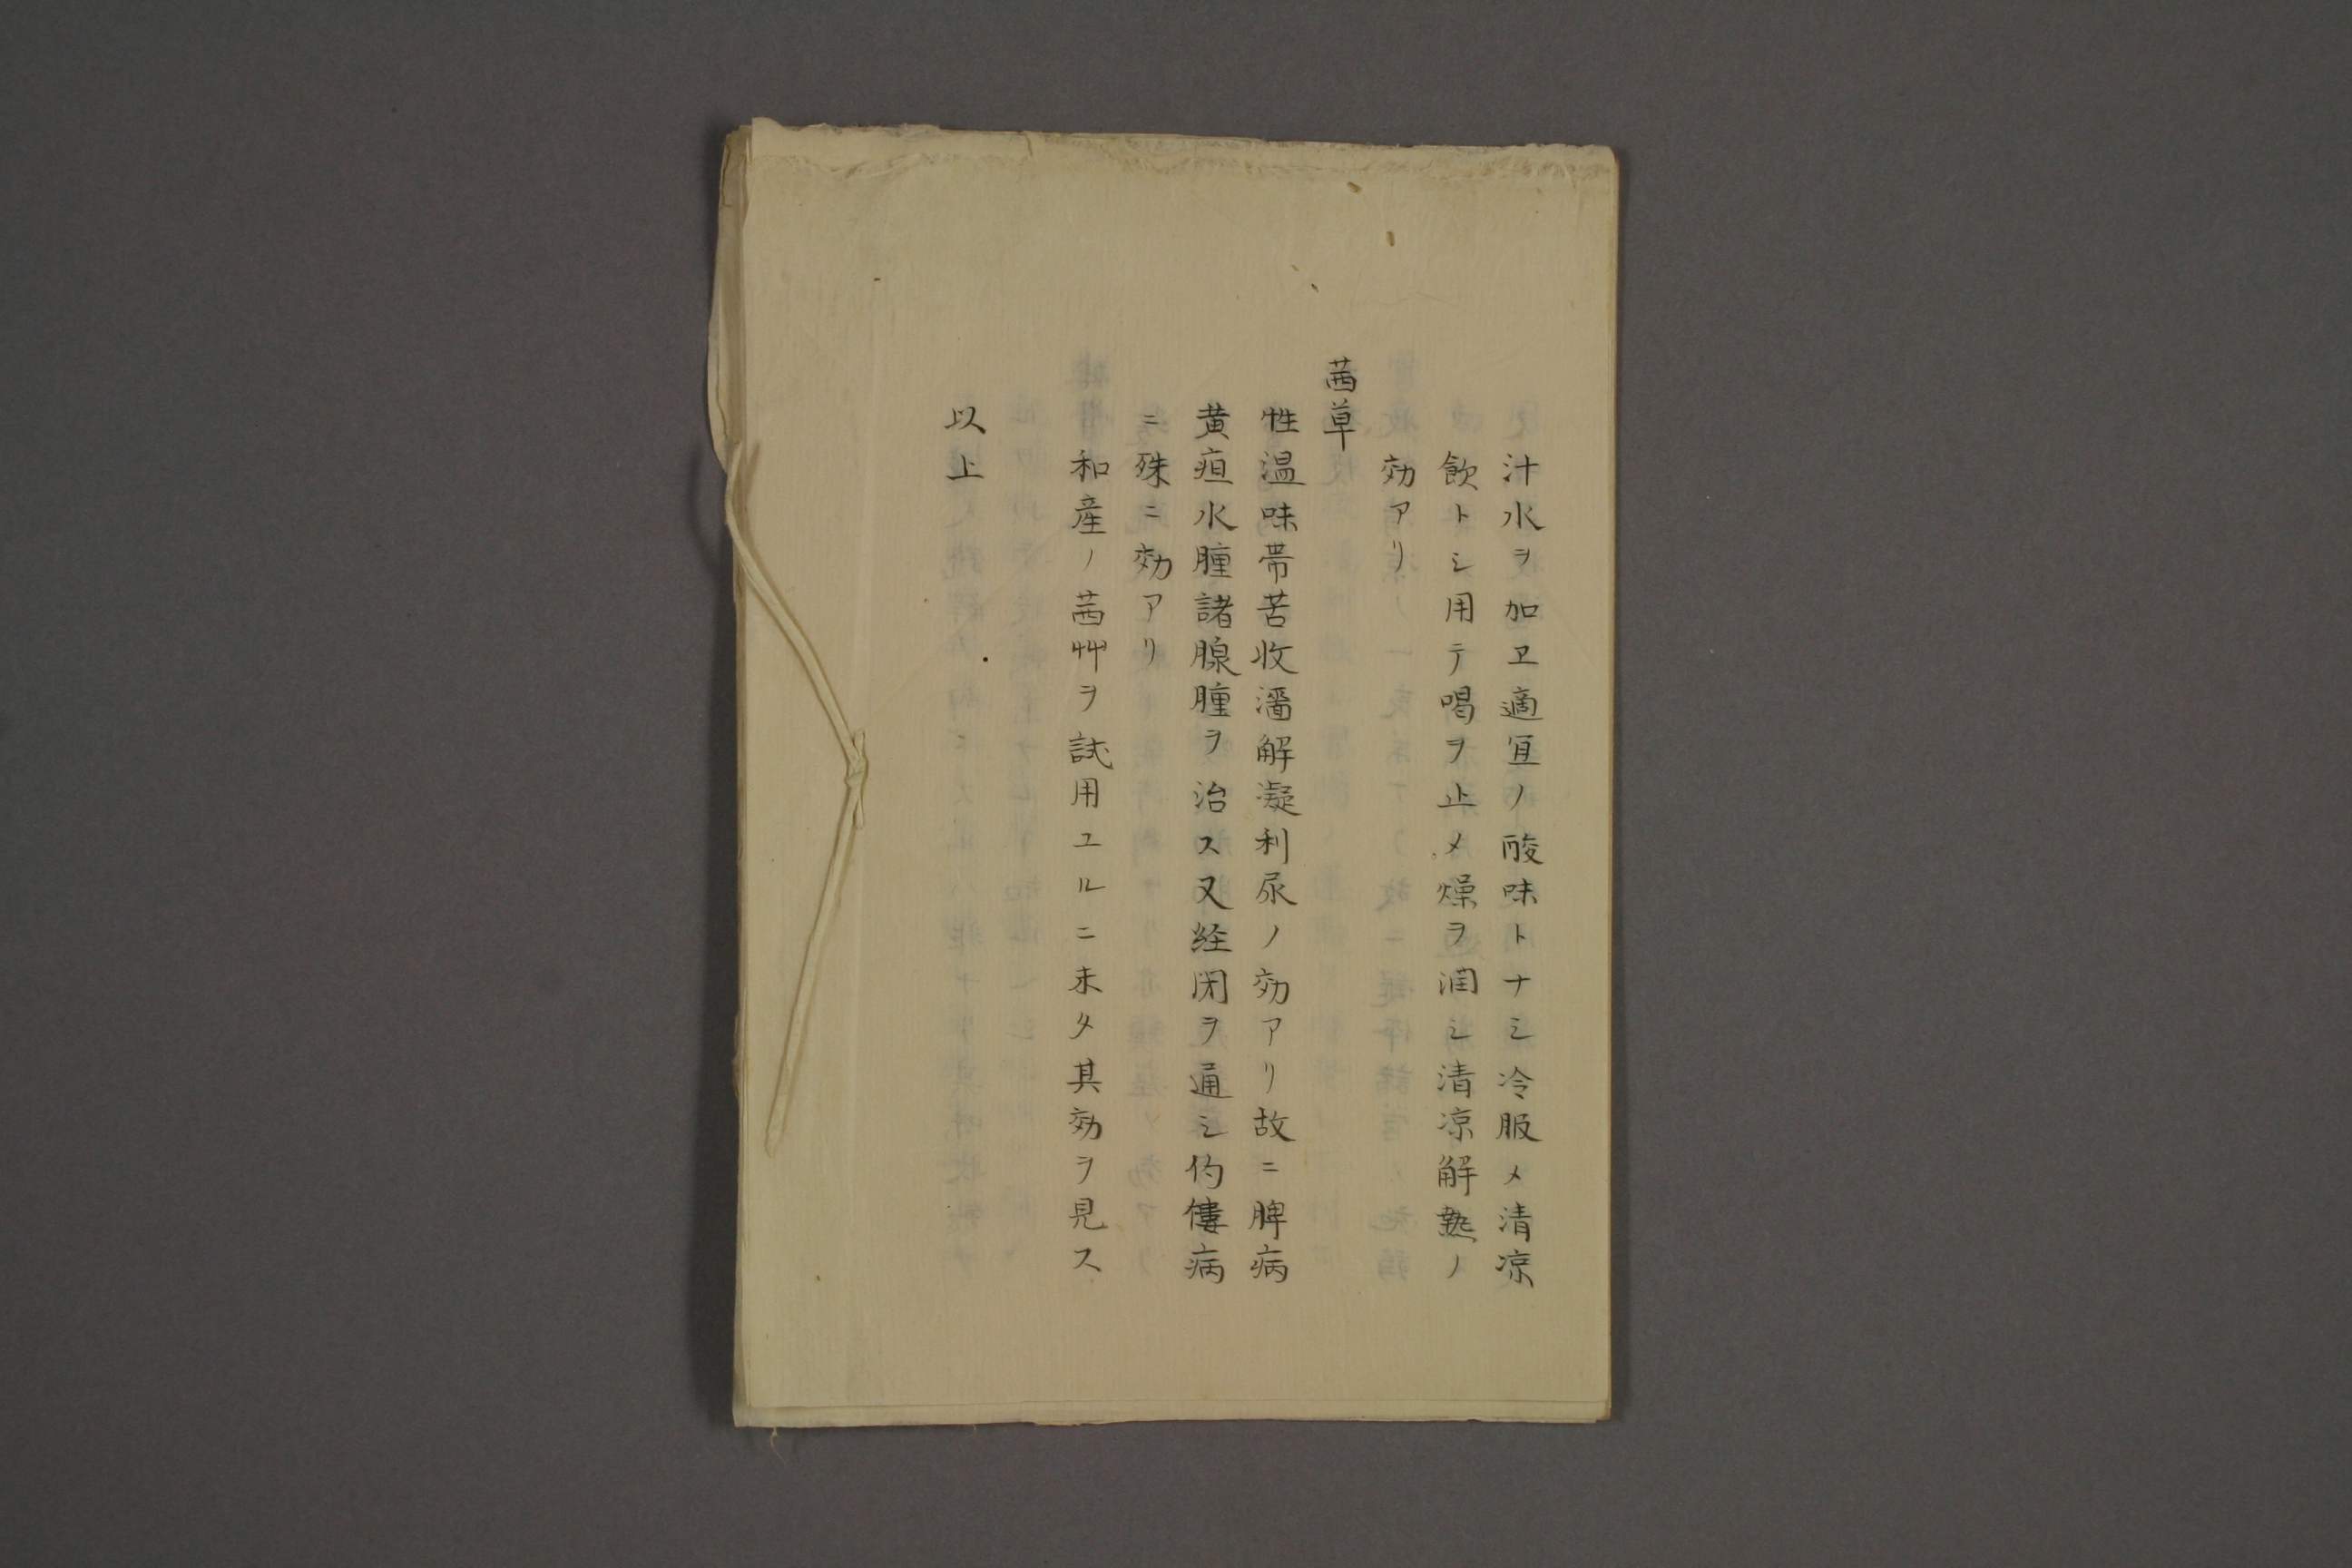 汁水ヲ加ヱ適宜ノ酸味トナシ冷服メ清凉
飲トシ用テ喝ヲ止メ燥ヲ潤シ清凉解熱ノ
効アリ
茜草
性温味帯苦收濇解凝利尿ノ効アリ故ニ脾病
黄疸水腫諸腺腫ヲ治ス又経閉ヲ通シ佝僂病
ニ殊ニ効アリ
和産ノ茜艸ヲ試用ユルニ未タ其効ヲ見ス
以上